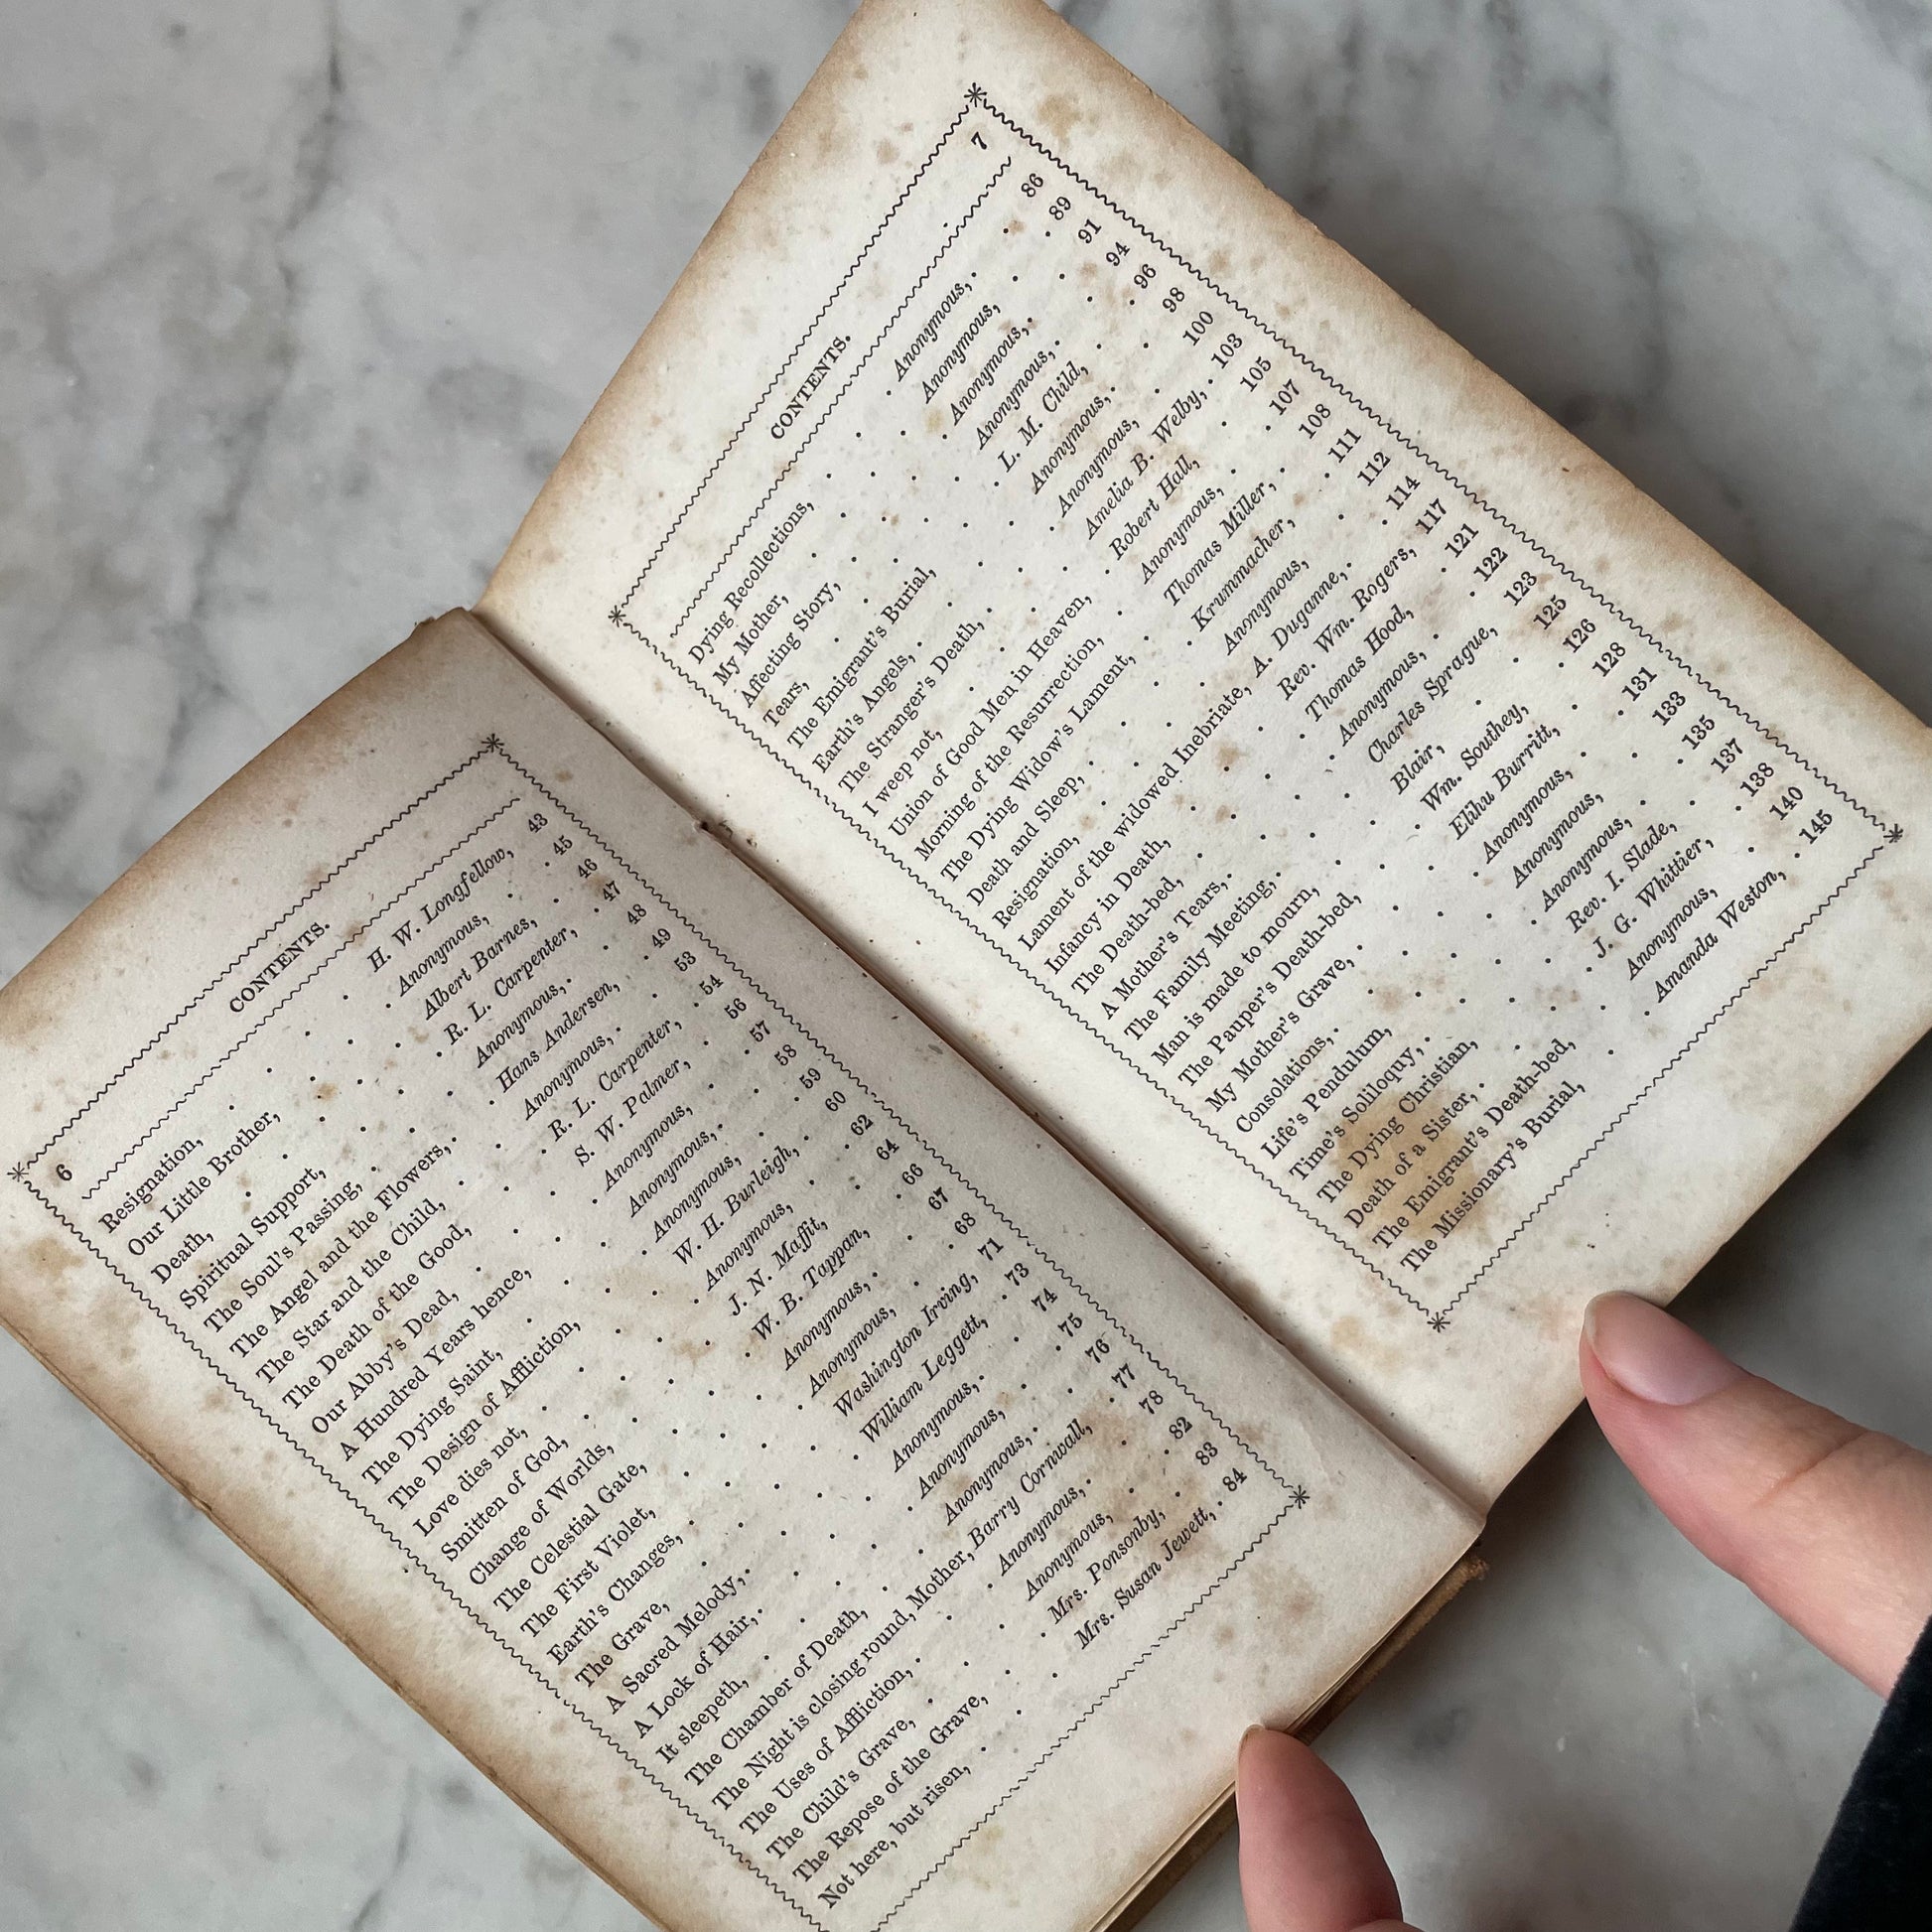 6 CONTENTS.
Resignation, . . . H. W. Longfellow, 43
Our Little Brother, . . . Anonymous, . . 45
Death, . . . Albert Barnes, . 46
Spiritual Support, . . . R. L. Carpenter, . 47
The Soul's Passing, . . . Anonymous, . . 48
The Angel and the Flowers, . . Hans Andersen, . 49
The Star and the Child, . . . Anonymous, . . 53
The Death of the Good, . . . R. L. Carpenter, . 54
Our Abby's Dead, . . . S. W. Palmer, . 56
A Hundred Years hence, . . . Anonymous, . . 57
The Dying Saint, . . . Anonymous, . . 58
The Design of Affliction, . . . Anonymous, . . 59
Love dies not, . . . W. H. Burleigh, . 60
Smitten of God, . . . Anonymous, . . 62
Change of Worlds, . . . J. N. Maffit, . . 64
The Celestial Gate, . . . W. B. Tappan, . 66
The First Violet, . . . Anonymous, . . 67
Earth's Changes, . . . Anonymous, . . 68
The Grave, . . . Washington Irving, 71
A Sacred Melody, . . . William Leggett, . 73
A Lock of Hair, . . . Anonymous, . . 74
It sleepeth, . . . Anonymous, . . 75
The Chamber of Death, . . . Anonymous, . . 76
The Night is closing round, Mother, Barry Cornwall, . 77
The Uses of Affliction, . . . Anonymous, . . 78
The Child's Grave, . . . Anonymous, . . 82
The Repose of the Grave, . . . Mrs. Ponsonby, . 83
Not here, but risen, . . . Mrs. Susan Jewett, . 84
CONTENTS. 7
Dying Recollections, . . . Anonymous, . . 86
My Mother, . . . Anonymous, . . 89
Affecting Story, . . . Anonymous, . . 91
Tears, . . . Anonymous, . . 94
The Emigrant's Burial, . . . L. M. Child, . . 96
Earth's Angels, . . . Anonymous, . . 98
The Stranger's Death, . . . Anonymous, . . 100
I weep not, . . . Amelia B. Welby, . 103
Union of Good Men in Heaven, . . Robert Hall, . . 105
Morning of the Resurrection, . . Anonymous, . . 107
The Dying Widow's Lament, . . Thomas Miller, . 108
Death and Sleep, . . . Krummacher, . . 111
Resignation, . . . Anonymous, . . 112
Lament of the widowed Inebriate, A. Duganne, . . 114
Infancy in Death, . . . Rev. Wm. Rogers, 117
The Death-bed, . . . Thomas Hood, . 121
A Mother's Tears, . . . Anonymous, . . 122
The Family Meeting, . . . Charles Sprague, . 123
Man is made to mourn, . . . Blair, . . . 125
The Pauper's Death-bed, . . . Wm. Southey, . . 126
My Mother's Grave, . . . Elihu Burritt, . . 128
Consolations, . . . Anonymous, . . 131
Life's Pendulum, . . . Anonymous, . . 133
Time's Soliloquy, . . . Anonymous, . . 135
The Dying Christian, . . . Rev. I. Slade, . . 137
Death of a Sister, . . . J. G. Whittier, . 138
The Emigrant's Death-bed, . . Anonymous, . . 140
The Missionary's Burial, . . . Amanda Weston, . 145